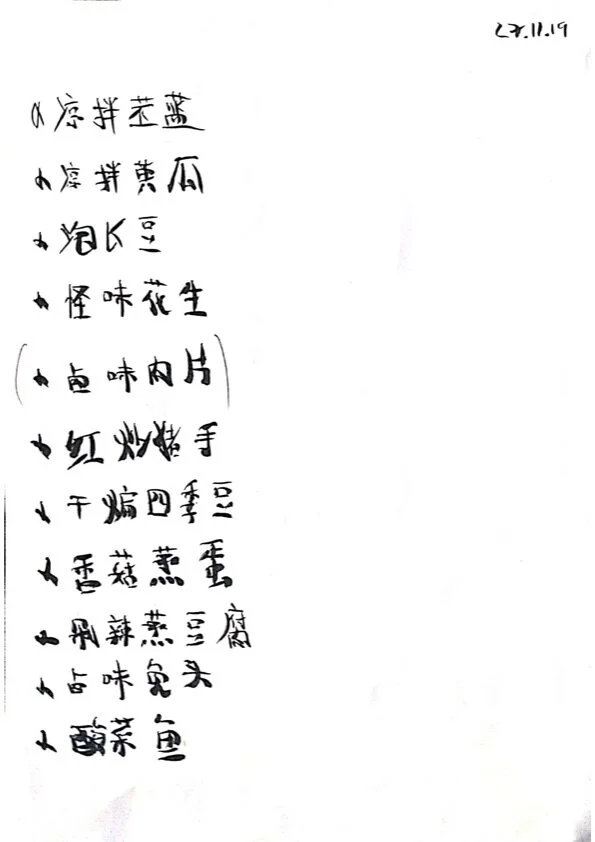 27.11.19
凉拌苤蓝
凉拌黄瓜
泡长豆
怪味花生
(卤味肉片)
红炒猪手
干煸四季豆
香菇蒸蛋
辣蒸豆腐
卤味兔头
酸菜鱼